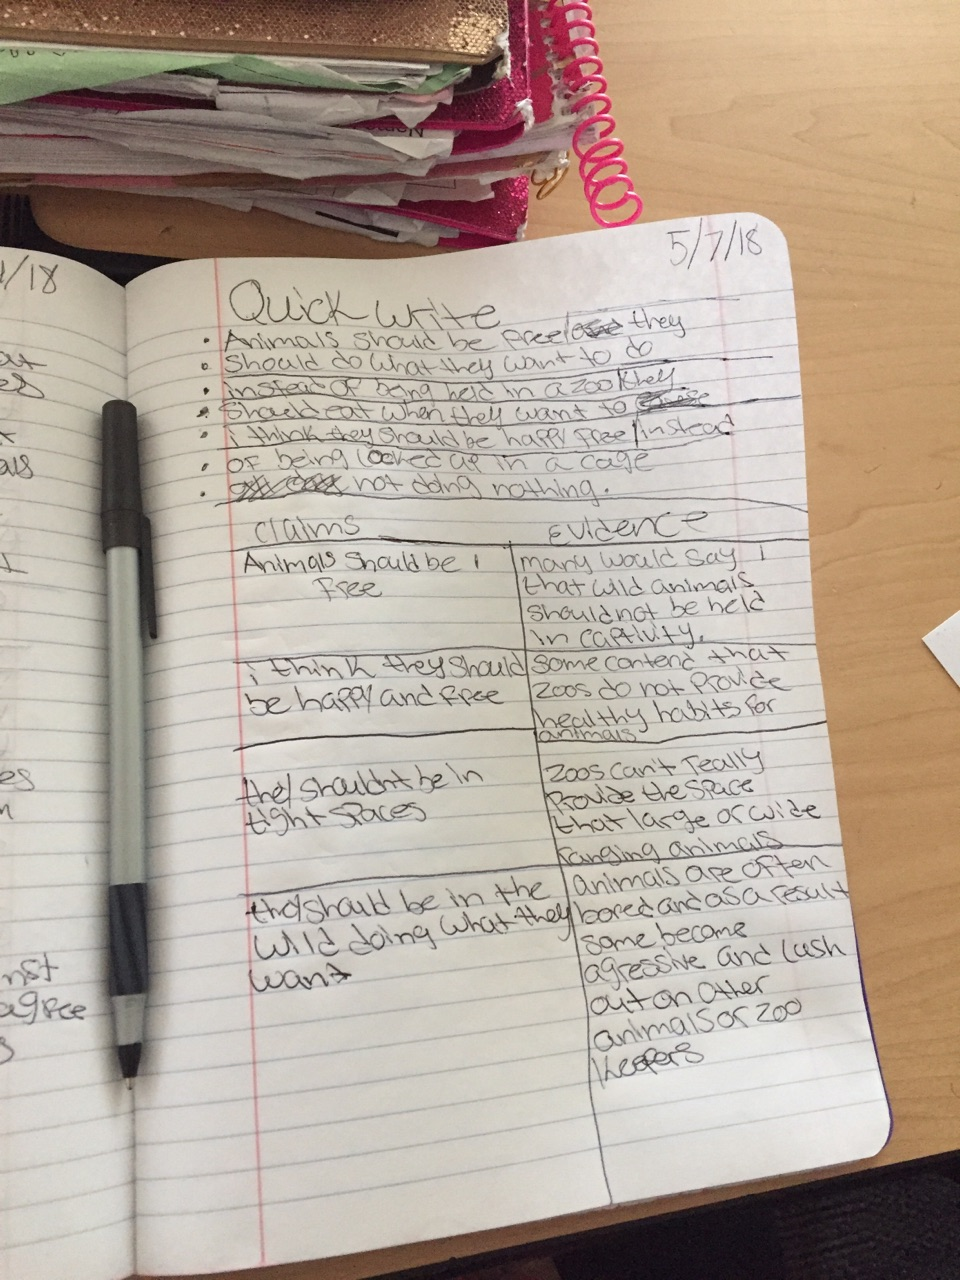 5/7/18
1/18
Quick write
• Animals should be free/ they
• Should do what they want to do
• instead of being held in a zoo/they
• Should eat when they want to
• i think they should be happy free/instead
• of being locked up in a cage
• not doing nothing.
claims
Evidence
Animals should be
free
many would say
that wild animals
should not be held
in captivity.
i think they should
be happy and free
some contend that
zoos do not provide
healthy habits for
animals
they shouldnt be in
tight spaces
zoos can't really
provide the space
that large or wide
ranging animals
they should be in the
wild doing what they
want
animals are often
bored and as a result
some become
agressive and lash
out on other
animals or zoo
keepers
nst
agree